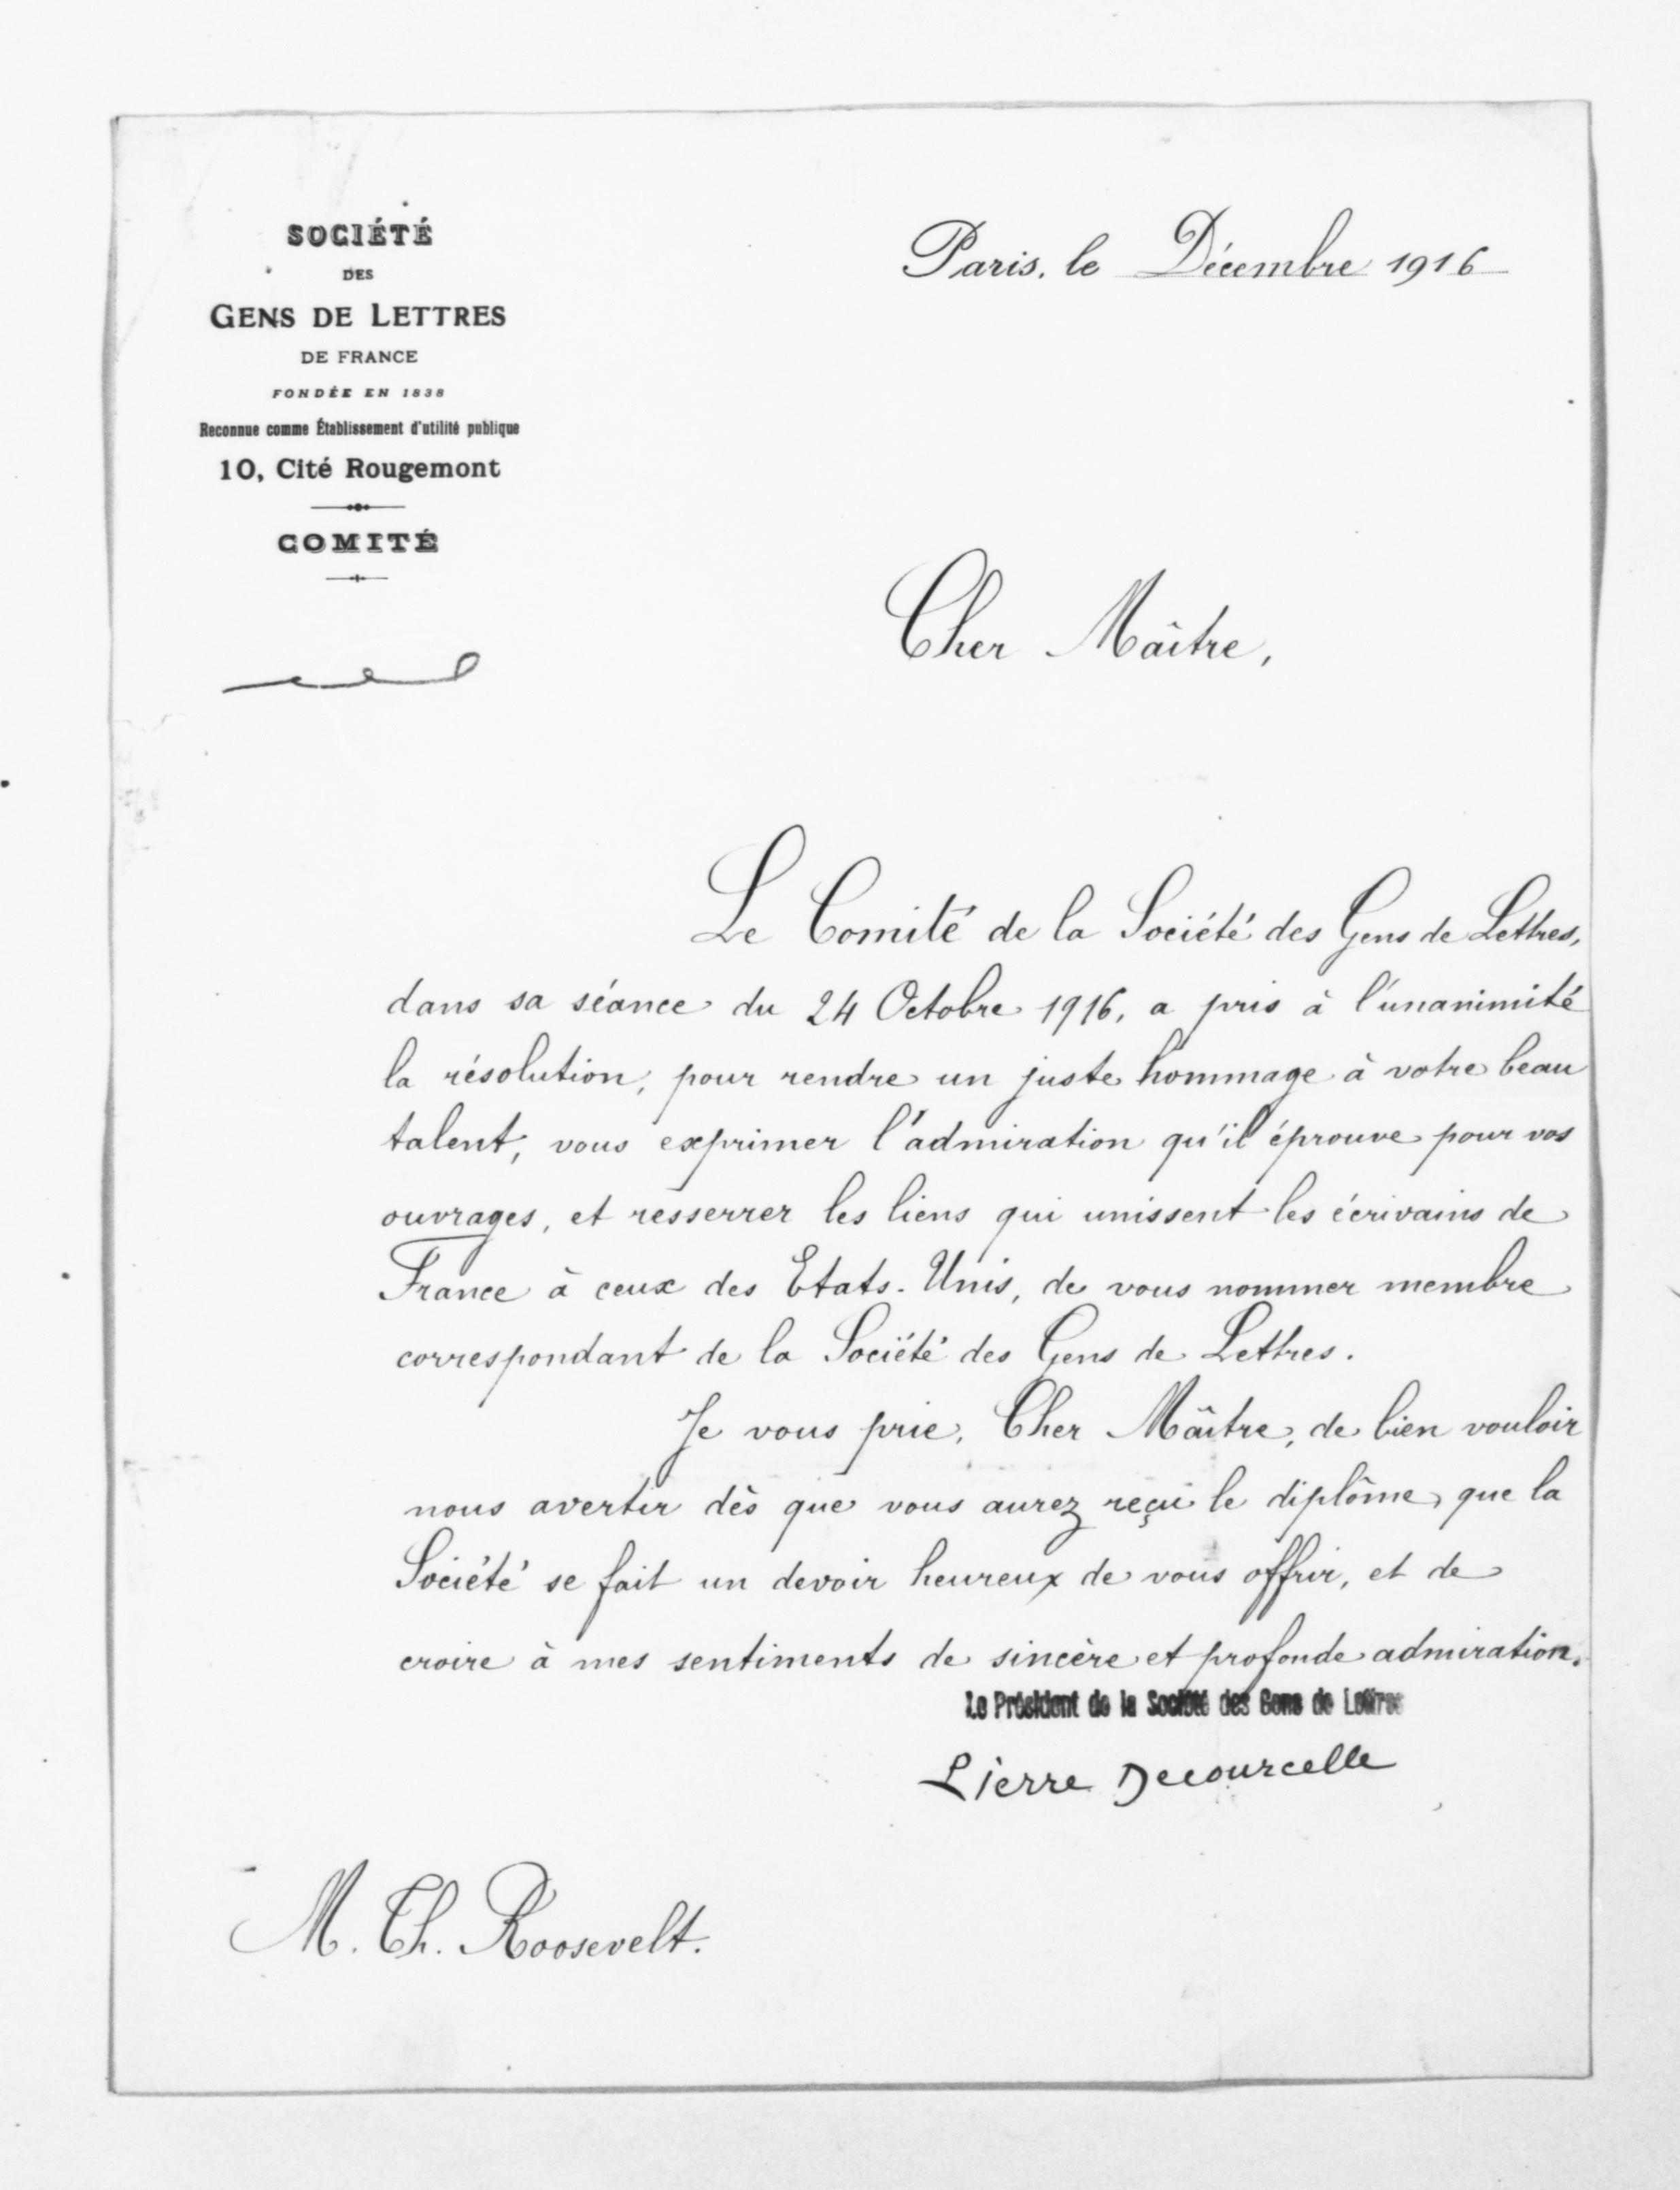 SOCIÉTÉ
DES
GENS DE LETTRES
DE FRANCE
FONDÉE EN 1838
Reconnue comme Établissement d'utilité publique
10, Cité Rougemont
COMITÉ
Paris, le Décembre 1916
Cher Maître,
Le Comité de la Société des Gens de Lettres,
dans sa séance du 24 Octobre 1916, a pris à l'unanimité
la résolution, pour rendre un juste hommage à votre beau
talent, vous exprimer l'admiration qu'il éprouve pour vos
ouvrages, et resserrer les liens qui unissent les écrivains de
France à ceux des Etats-Unis, de vous nommer membre
correspondant de la Société des Gens de Lettres.
Je vous prie, Cher Maître, de bien vouloir
nous avertir dès que vous aurez reçu le diplôme, que la
Société se fait un devoir heureux de vous offrir, et de
croire à mes sentiments de sincère et profonde admiration.
Le Président de la Société des Gens de Lettres
Pierre Decourcelle
M. Th. Roosevelt.